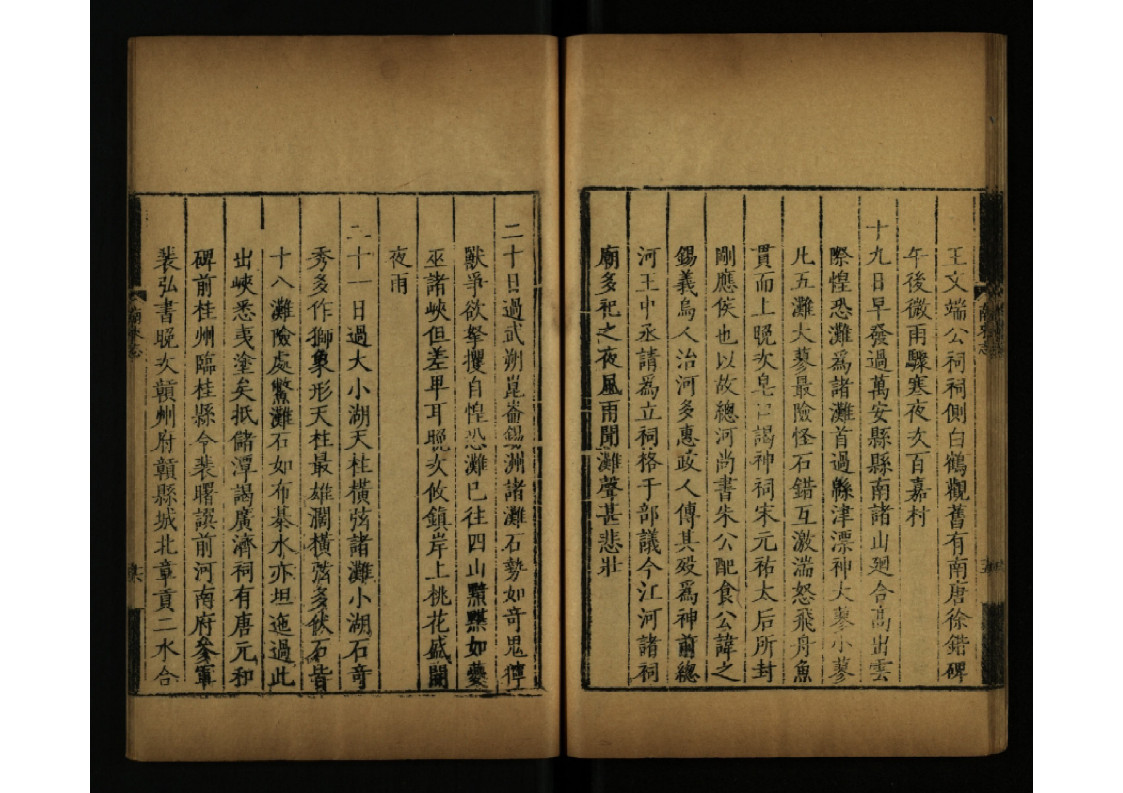 王文端公祠祠側白鶴觀舊有南唐徐鍇碑
午後微雨驟寒夜次百嘉村
十九日早發過萬安縣縣南諸山廻合高出雲
際惶恐灘爲諸灘首過緜津漂神大蓼小蓼
凡五灘大蓼最險怪石錯互激湍怒飛舟魚
貫而上晚次皂口謁神祠宋元祐太后所封
剛應侯也以故總河尚書朱公配食公諱之
錫義烏人治河多惠政人傳其歿爲神前總
河王中丞請爲立祠格于部議今江河諸祠
廟多祀之夜風雨聞灘聲甚悲壯
二十日過武朔崑崙錫洲諸灘石勢如奇鬼獰
獸爭欲拏攫自惶恐灘已往四山黰黮如夔
巫諸峽但差卑耳晚次攸鎮岸上桃花盛開
夜雨
二十一日過大小湖天柱橫弦諸灘小湖石奇
秀多作獅象形天柱最雄濶橫弦多伏石皆
十八灘險處鱉灘石如布棊水亦坦迤過此
出峽悉夷塗矣抵儲潭謁廣濟祠有唐元和
碑前桂州臨桂縣令裴曙譔前河南府參軍
裴弘書晚次贛州府贛縣城北章貢二水合
南來志